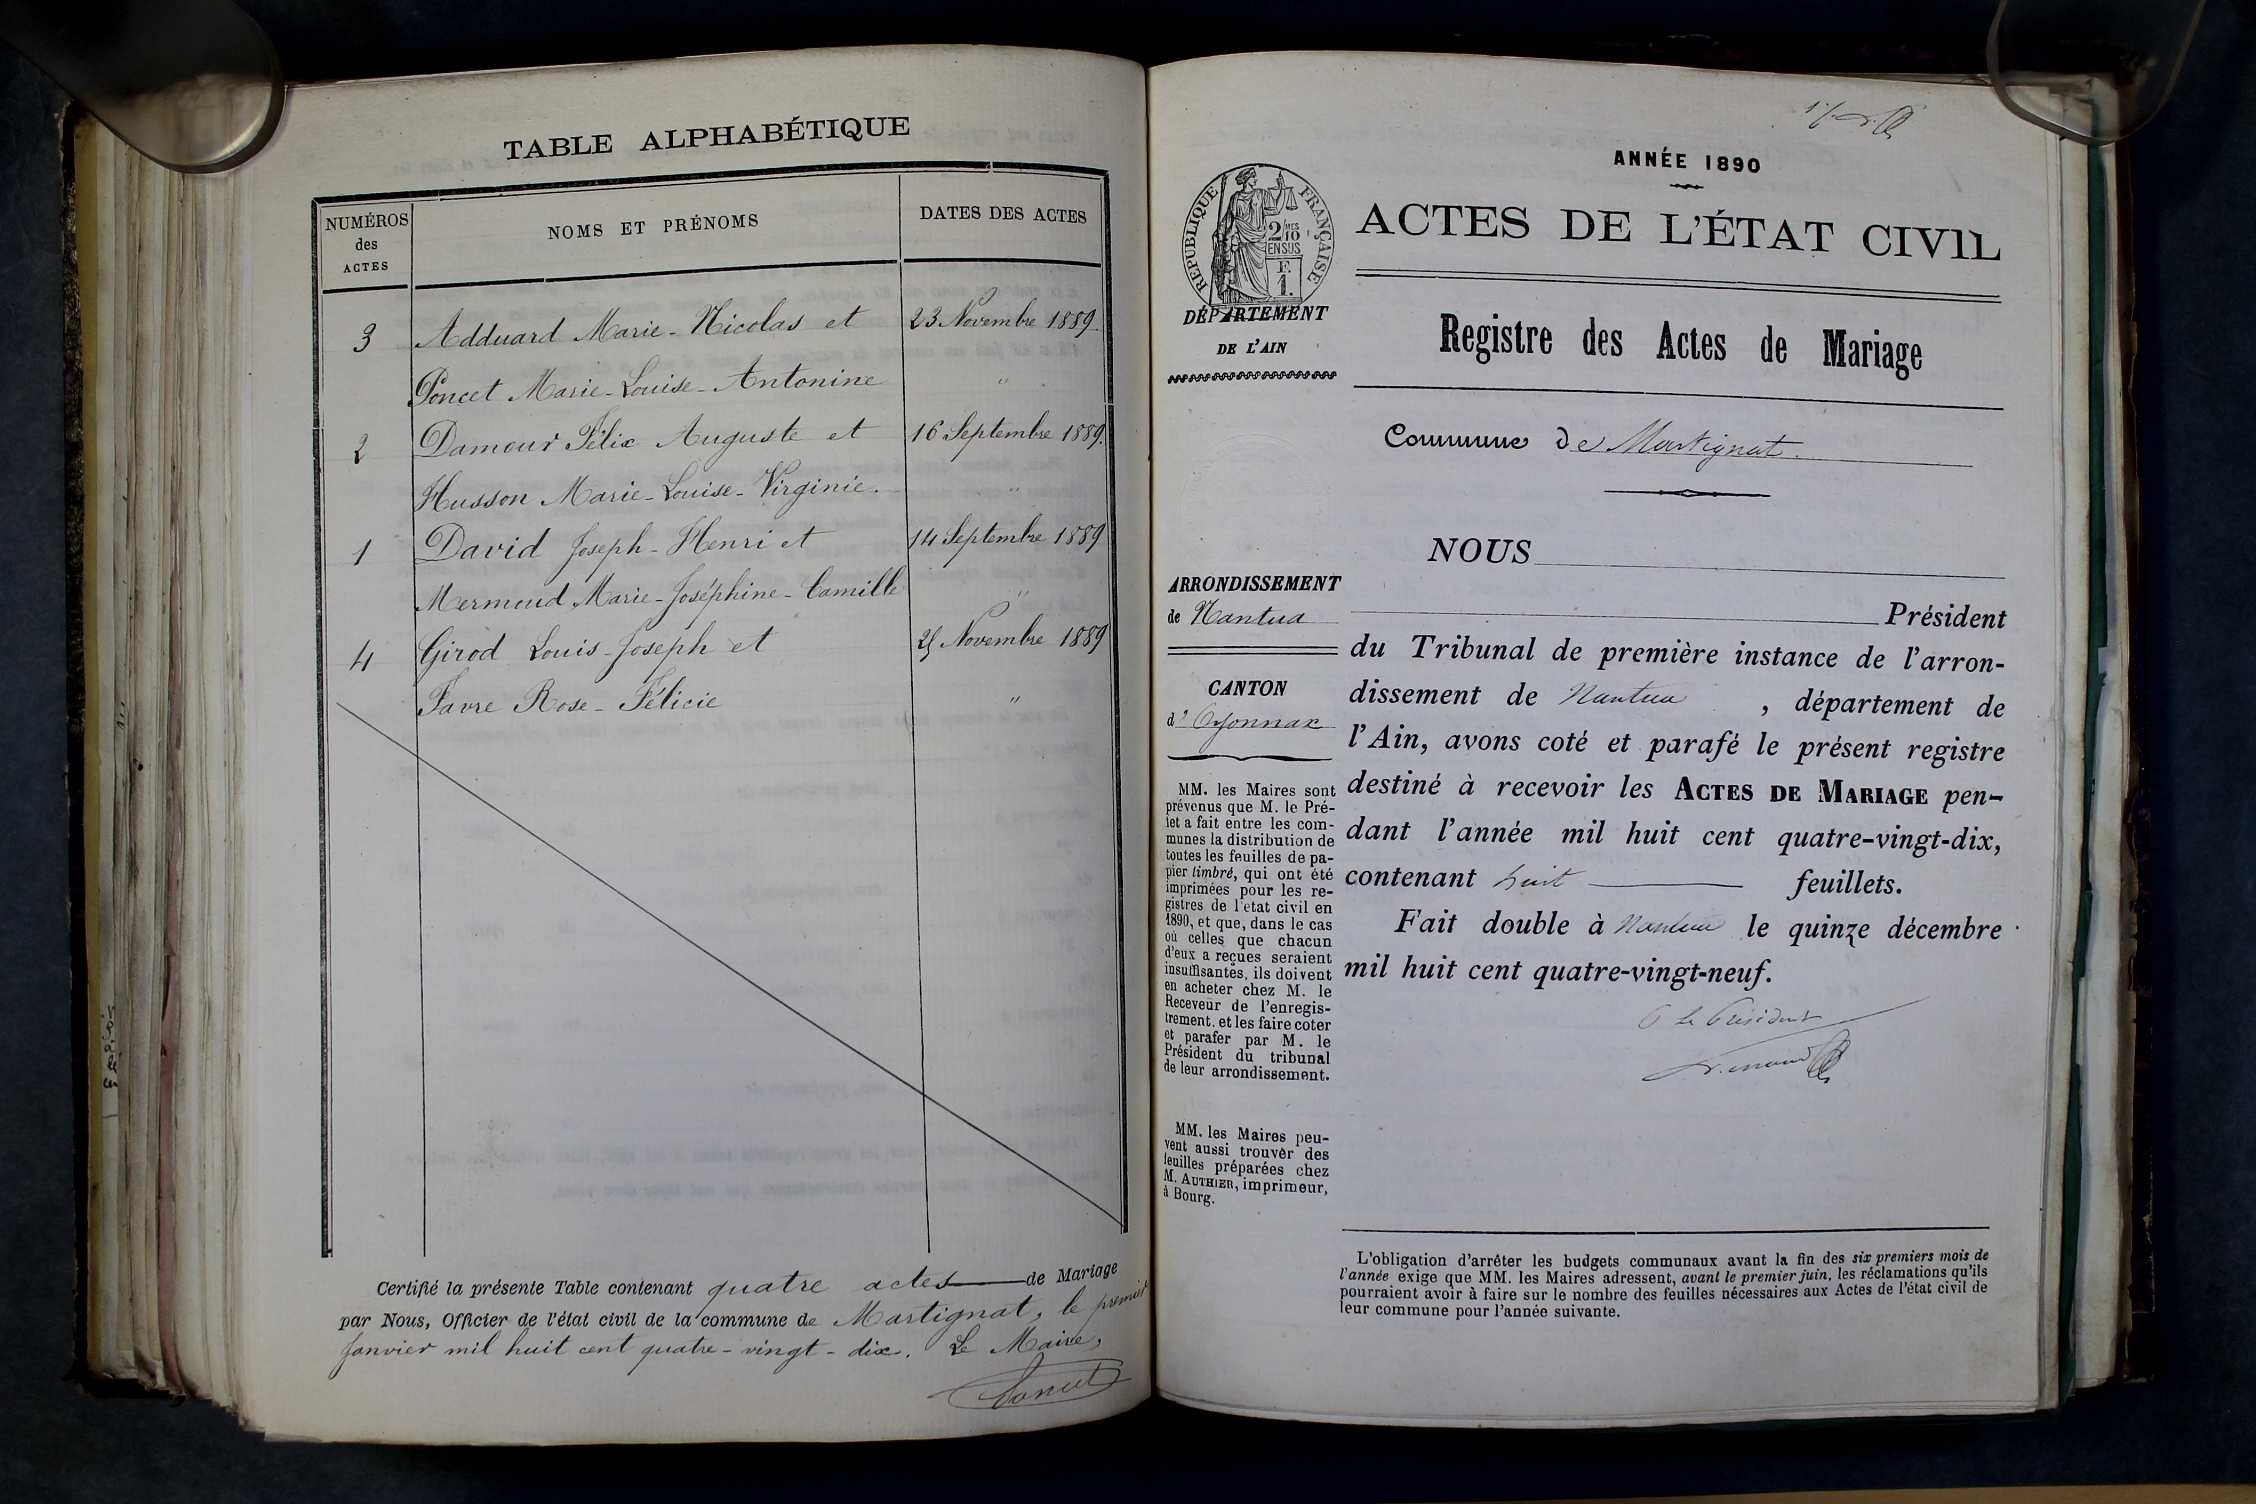 TABLE ALPHABÉTIQUE
NUMÉROS
des
ACTES
NOMS ET PRÉNOMS
DATES DES ACTES
3 Adduard Marie-Nicolas et 23 Novembre 1889.
Poncet Marie-Louise-Antonine "
2 Damour Félix Auguste et 16 Septembre 1889.
Husson Marie-Louise-Virginie. "
1 David Joseph-Henri et 14 Septembre 1889
Mermoud Marie-Joséphine-Camille "
4 Girod Louis-Joseph et Novembre 1889
Favre Rose-Félicie "
Certifié la présente Table contenant quatre actes de Mariage
par Nous, Officier de l'état civil de la commune de Martignat, le premier
Janvier mil huit cent quatre-vingt-dix. Le Maire,
ANNÉE 1890
RÉPUBLIQUE FRANÇAISE
2/10 MES
EN SUS
F.
1.
ACTES DE L'ÉTAT CIVIL
DÉPARTEMENT
DE L'AIN
Registre des Actes de Mariage
Commune de Martignat.
ARRONDISSEMENT
de Nantua
CANTON
d'Oyonnax
MM. les Maires sont
prévenus que M. le Pré-
fet a fait entre les com-
munes la distribution de
toutes les feuilles de pa-
pier timbré, qui ont été
imprimées pour les re-
gistres de l'état civil en
1890, et que, dans le cas
où celles que chacun
d'eux a reçues seraient
insuffisantes, ils doivent
en acheter chez M. le
Receveur de l'enregis-
trement, et les faire coter
et parafer par M. le
Président du tribunal
de leur arrondissement.
MM. les Maires peu-
vent aussi trouver des
feuilles préparées chez
M. AUTHIER, imprimeur,
à Bourg.
NOUS
Président
du Tribunal de première instance de l'arron-
dissement de Nantua , département de
l'Ain, avons coté et parafé le présent registre
destiné à recevoir les ACTES DE MARIAGE pen-
dant l'année mil huit cent quatre-vingt-dix,
contenant huit feuillets.
Fait double à Nantua le quinze décembre
mil huit cent quatre-vingt-neuf.
Le Président
L'obligation d'arrêter les budgets communaux avant la fin des six premiers mois de
l'année exige que MM. les Maires adressent, avant le premier juin, les réclamations qu'ils
pourraient avoir à faire sur le nombre des feuilles nécessaires aux Actes de l'état civil de
leur commune pour l'année suivante.